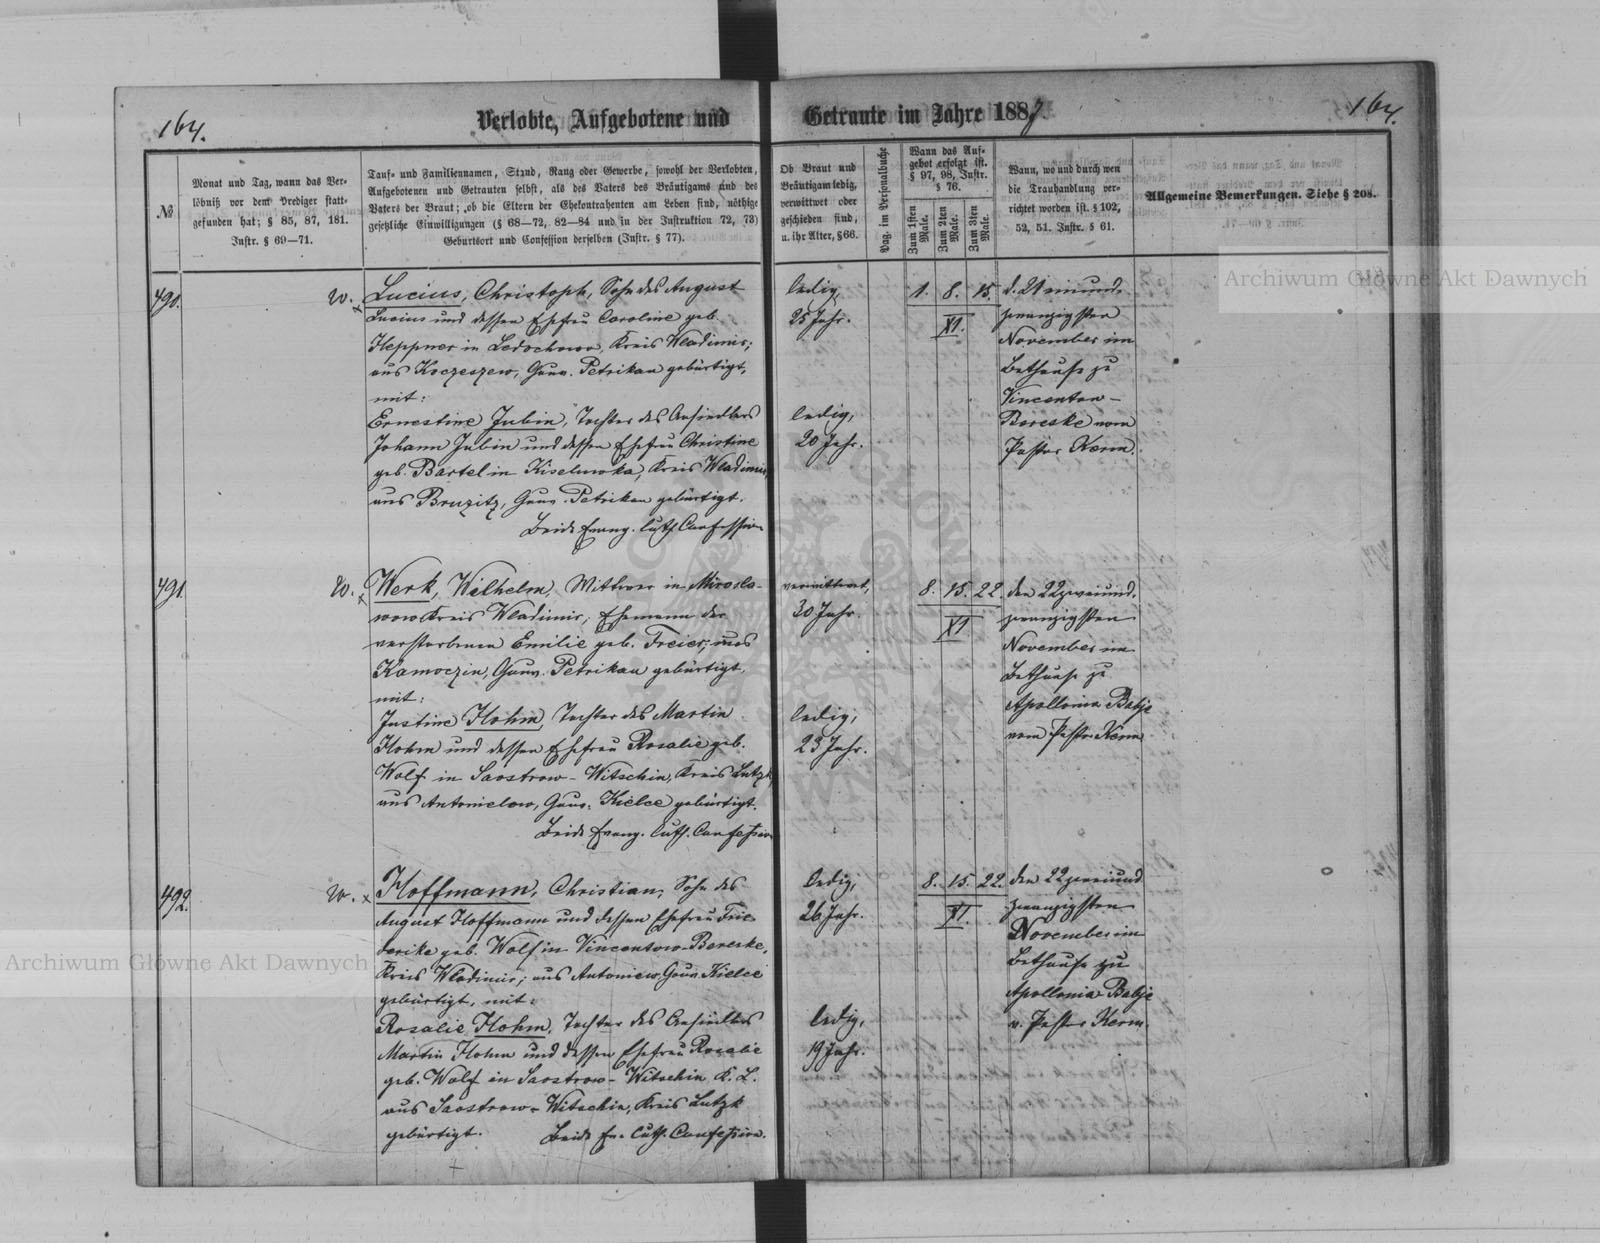 164.
Verlobte, Aufgebotene und Getraute im Jahre 1887.
164.
№
Monat und Tag, wann das Ver-
löbniß vor dem Prediger statt-
gefunden hat; § 85, 87, 181.
Instr. § 69—71.
Tauf- und Familiennamen, Stand, Rang oder Gewerbe, sowohl der Verlobten,
Aufgebotenen und Getrauten selbst, als des Vaters des Bräutigams und des
Vaters der Braut; ob die Eltern der Ehekontrahenten am Leben sind, nöthige
gesetzliche Einwilligungen (§ 68—72, 82—84 und in der Instruktion 72, 73)
Geburtsort und Confession derselben (Instr. § 77).
Ob Braut und
Bräutigam ledig,
verwittwet oder
geschieden sind,
u. ihr Alter, § 66.
Pag. im Personalbuche
Wann das Auf-
gebot erfolgt ist.
§ 97, 98, Instr.
§ 76.
Zum 1sten Male.
Zum 2ten Male.
Zum 3ten Male.
Wann, wo und durch wen
die Trauhandlung ver-
richtet worden ist. § 102,
52, 51. Instr. § 61.
Allgemeine Bemerkungen. Siehe § 208.
490.
w.
Lucius, Christoph, Sohn des August
Lucius und dessen Ehefrau Caroline geb.
Heppner in Ledochowo, Kreis Wladimir;
aus Koczeszew, Gouv. Petrikau gebürtigt,
mit:
Ernestine Jubin, Tochter des Ansiedlers
Johann Jubin und dessen Ehefrau Christine
geb. Bartel in Kiselewka, Kreis Wladimir,
aus Bruzitz, Gouv. Petrikau gebürtigt.
Beide Evang. Luth. Confession
ledig,
25 Jahr.
ledig,
20 Jahr.
1. 8. 15.
XI.
d. 21 einund-
zwanzigsten
November im
Bethause zu
Vincentow-
Bereske vom
Pastor Kerm.
491.
w.
Werk, Wilhelm, Wittwer in Mirosla-
wow Kreis Wladimir, Ehemann der
verstorbenen Emilie geb. Freier; aus
Kamoczin, Gouv. Petrikau gebürtigt,
mit:
Justine Hohm, Tochter des Martin
Hohm und dessen Ehefrau Rosalie geb.
Wolf in Saostrow-Witschin, Kreis Lutzk,
aus Antonielow, Gouv. Kielce gebürtigt.
Beide Evang. Luth. Confession
verwittwet,
30 Jahr.
ledig,
23 Jahr.
8. 15. 22.
XI
den 22 zweiund-
zwanzigsten
November im
Bethause zu
Apollonia Babje
vom Pastor Kerm
492.
w.
Hoffmann, Christian, Sohn des
August Hoffmann und dessen Ehefrau Frie-
derike geb. Wolf in Vincentow-Bereske,
Kreis Wladimir; aus Antoniew, Gouv. Kielce
gebürtigt, mit:
Rosalie Hohm, Tochter des Ansiedlers
Martin Hohm und dessen Ehefrau Rosalie
geb. Wolf in Saostrow-Witschin K. L.
aus Saostrow-Witschin, Kreis Lutzk
gebürtigt. Beide Ev. Luth. Confession.
ledig,
26 Jahr.
ledig,
19 Jahr.
8. 15. 22.
XI.
den 22 zweiund
zwanzigsten
November im
Bethause zu
Apollonia Babje
v. Pastor Kerm.
Archiwum Główne Akt Dawnych
Archiwum Główne Akt Dawnych